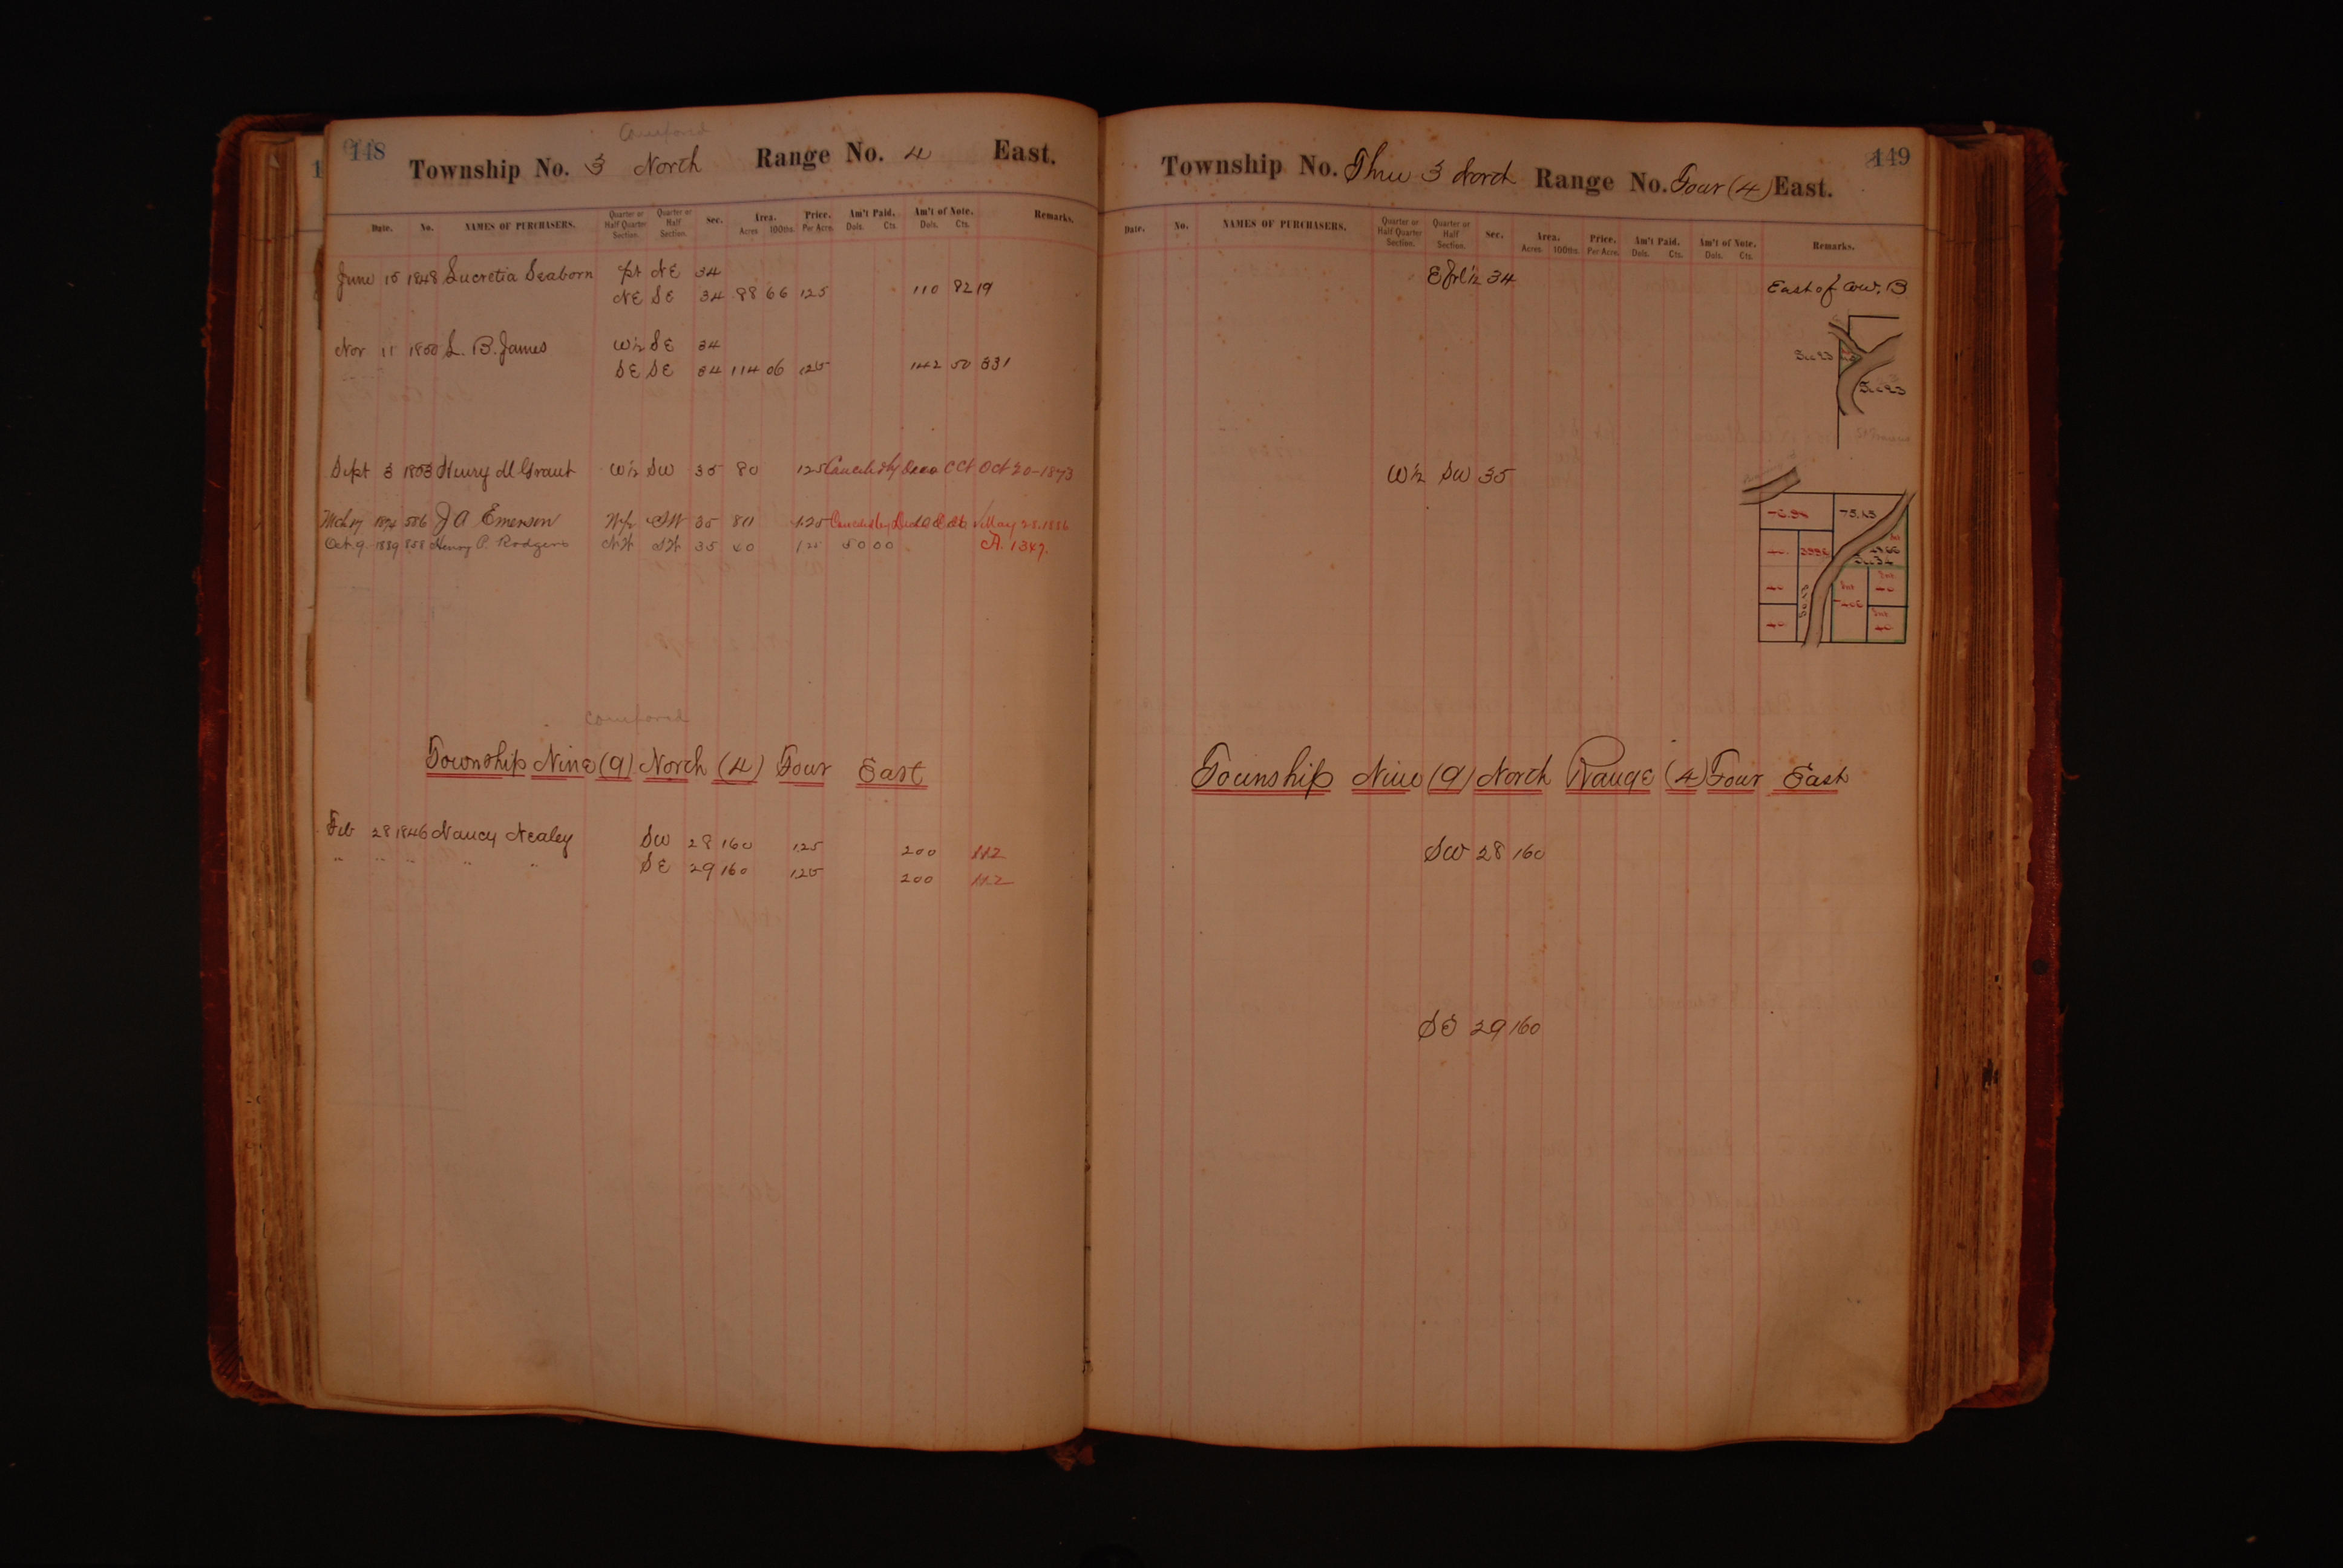 148
Compared
Township No. 3 North Range No. 4 East.
Date. No. NAMES OF PURCHASERS. Quarter or Half Quarter Section. Quarter or Half Section. Sec. Area. Acres 100ths Price. Per Acre. Am't Paid. Dols. Cts. Am't of Note. Dols. Cts. Remarks.
June 15 1848 Lucretia Seaborn pt NE 34
NE SE 34 88 66 125 110 82 19
Nov 11 1850 L. B. James W½ SE 34
SE SE 34 114 06 125 142 50 331
Sept 3 1853 Henry M Grant W½ SW 35 80 125 Canceled by Decree C Ct Oct 20-1873
Mch 17 1874 586 J A Emerson W½ SW 35 80 1.25 May 28.1886
Oct. 9 1889 858 Henry P. Rodgers NW SW 35 40 1 25 50 00 A. 1347.
Compared
Township Nine (9) North (4) Four East
Feb 28 1846 Nancy Nealey SW 28 160 125 200 112
" " " " " SE 29 160 125 200 112
149
Township No. Three 3 North Range No. Four (4) East.
Date. No. NAMES OF PURCHASERS. Quarter or Half Quarter Section. Quarter or Half Section. Sec. Area. Acres. 100ths. Price. Per Acre. Am't Paid. Dols. Cts. Am't of Note. Dols. Cts. Remarks.
E frl ½ 34 East of
Sec 23
Sec 23
W½ SW 35
75.15
Sec 34
40
40
40
40
Township Nine (9) North Range (4) Four East
SW 28 160
SE 29 160